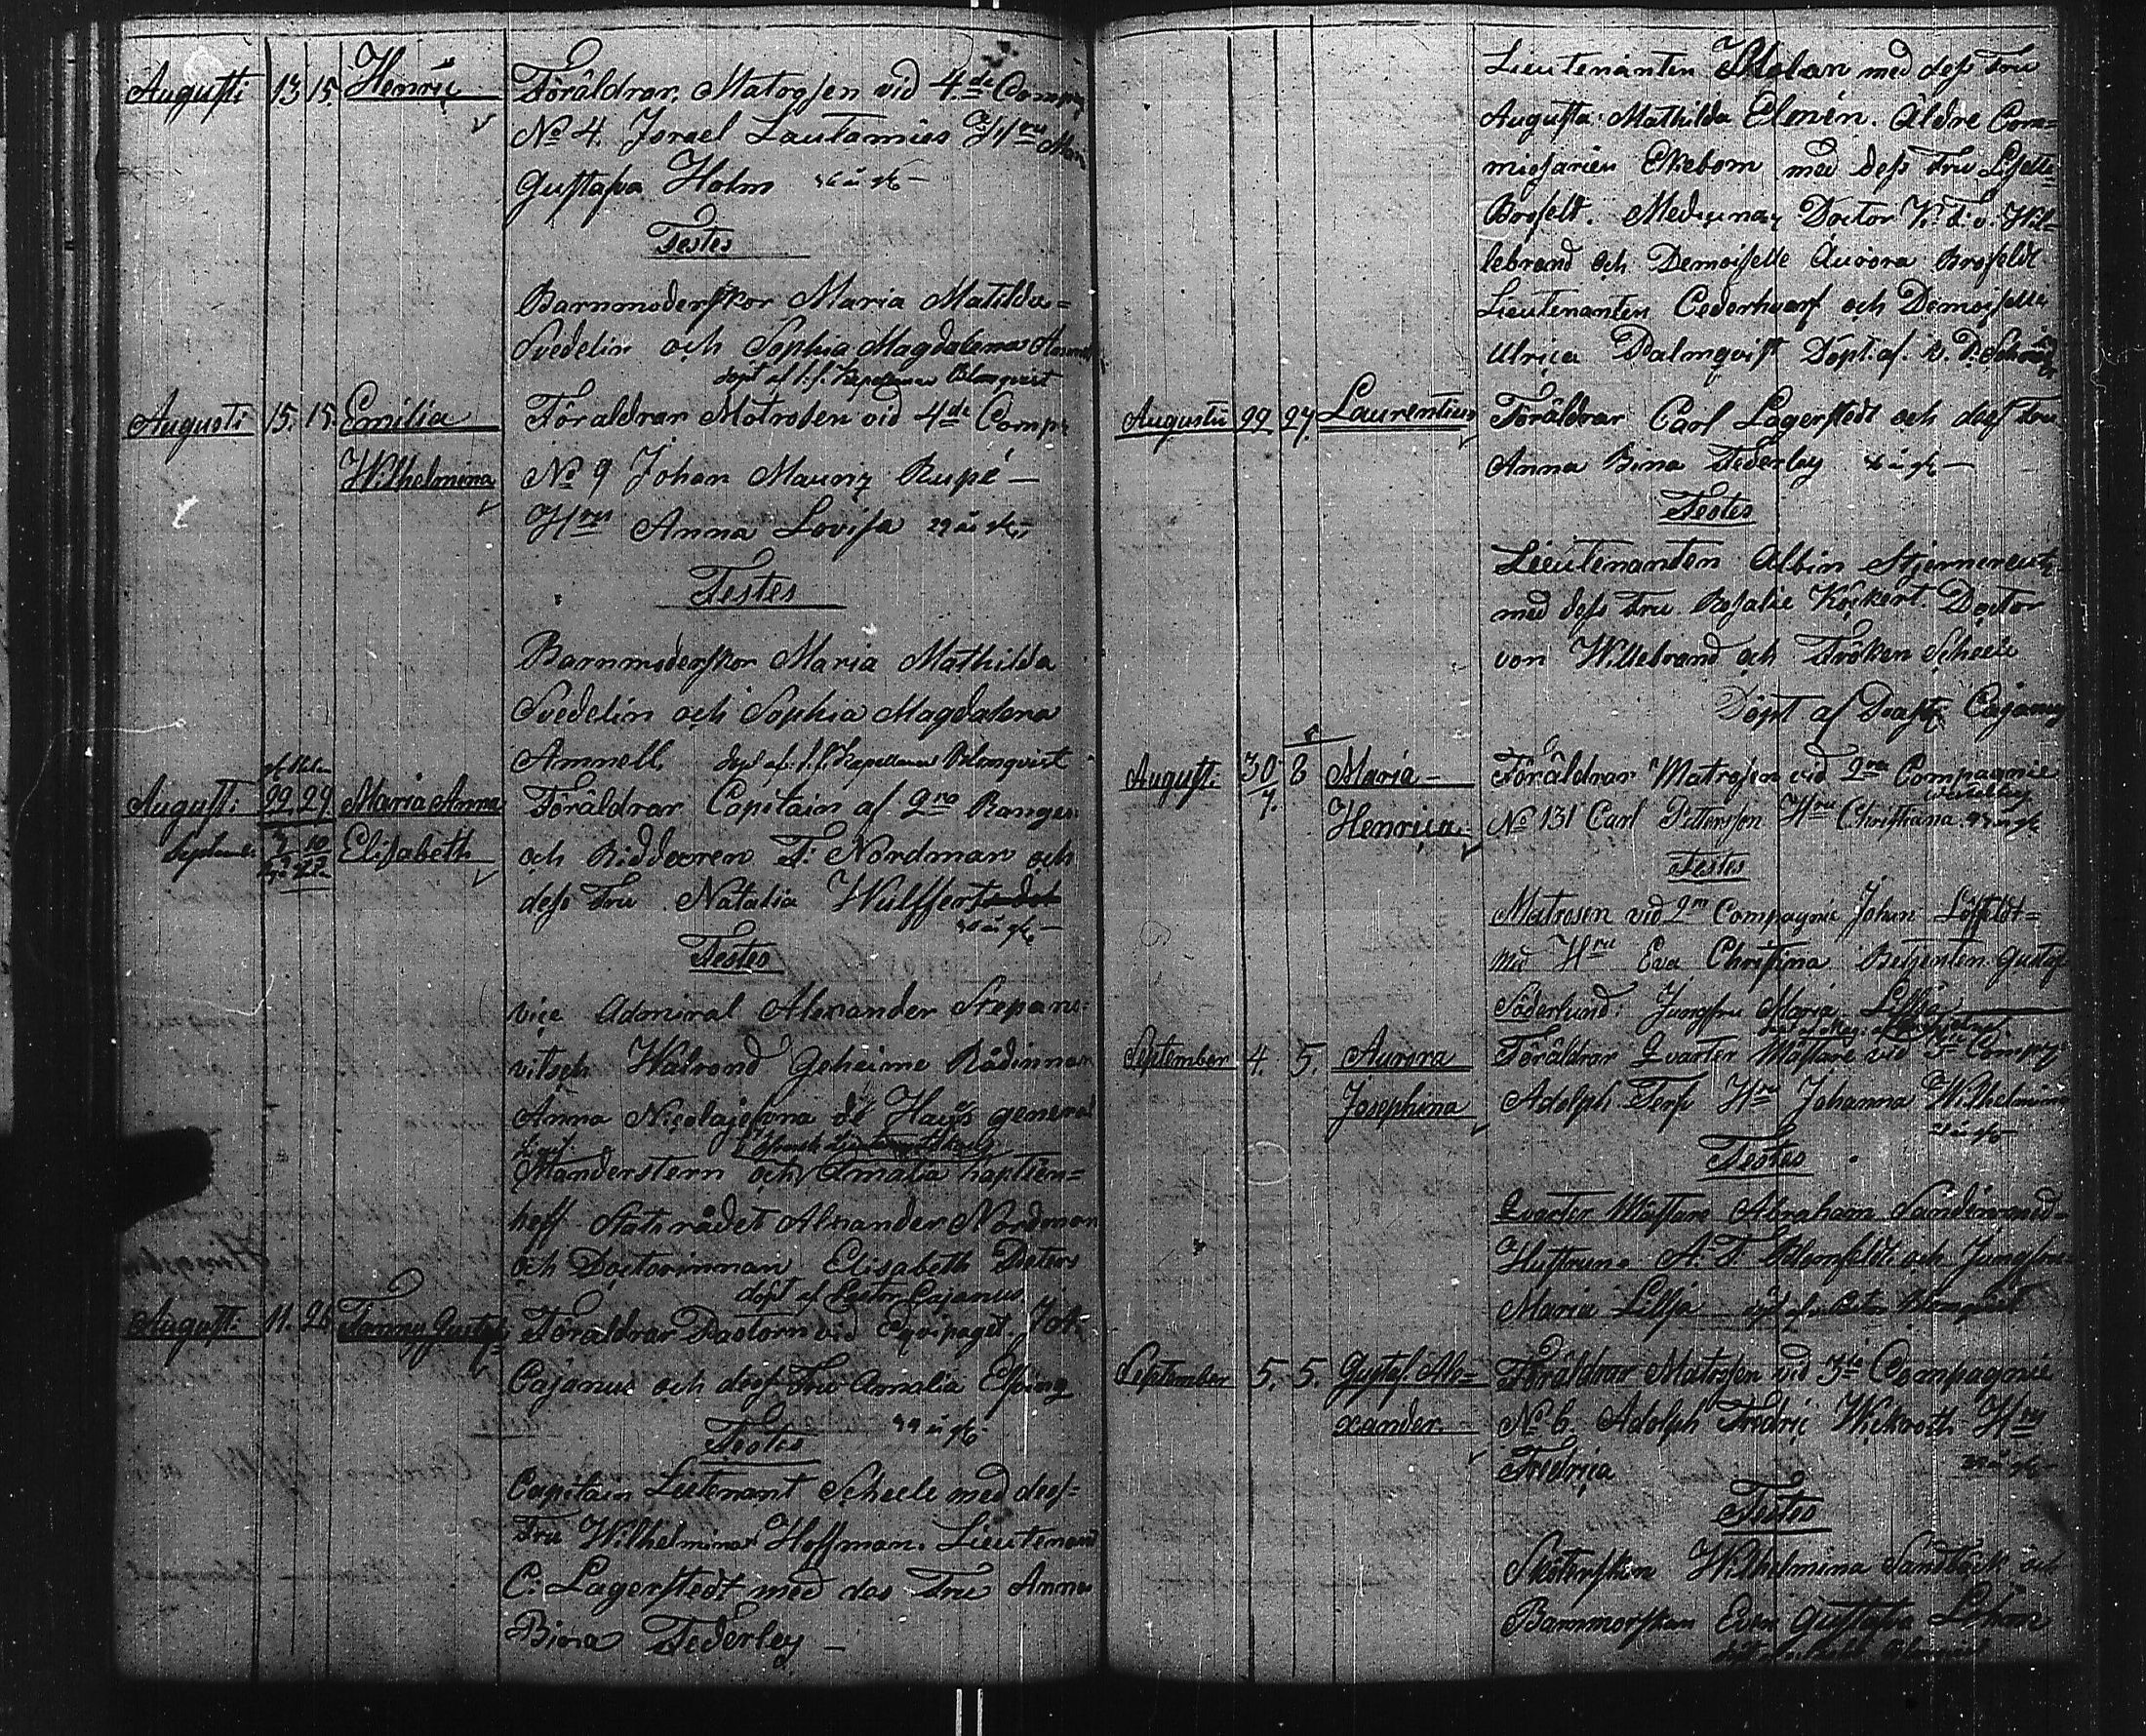 Augusti 13 15. Henric Föräldrar. Matrosen vid 4de Comp:
No 4. Israel Lautamies Hru
Gustafva Holm
Testes
Barnmoderskor Maria Matilda
Svedelin och Sophia Magdalena
döpt af Blomqvist
Augusti 15. 15. Emilia Föräldrar Matrosen vid 4de Comp:
Wilhelmina No 9 Johan Mauriz Rupé
Hru Anna Lovisa 29 år
Testes
Barnmoderskor Maria Mathilda
Svedelin och Sophia Magdalena
Ammell. Blomqvist
Augusti 29 Maria Anna Föräldrar Capitain af 2ra Rangen
Elisabeth och Riddaren F. Nordman och
dess Fru Natalia Wulffert
Testes
vice Admiral Alexander Stepano-
vitsch Walrond Geheime Rådinnan
Anna Nicolajefvna de general
Manderstern och Amalia
hoff Statsrådet Alexander Nordman
och Doctorinnan Elisabeth
döpt af Pastor Cajanus
Augusti 11. 26 Fanny Gustaf Föräldrar Pastorn vid Eqvipaget Joh:
Cajanus och dess Fru Amalia Esping
Testes
Capitain Lieutenant Scheele med dess
Fru Wilhelmina Hoffman. Lieutenant
C: Lagerstedt med dess Fru Anna
Bina Federley
Lieutenanten med dess Fru
Augusta Mathilda Elmén. Äldre Com=
missarien Ekebom med dess Fru
Brofeldt. Doctor v. Wil=
lebrand och Demoiselle Aurora Brofeldt
Lieutenanten Cederhvarf och Demoiselle
Ulrica Palmqvist Döpt af
Augusti 22 27. Laurentius Föräldrar Carl Lagerstedt och dess Fru
Anna Bina Federley
Testes
Lieutenanten Albin Stjerncreutz
med dess Fru Rosalie Kockert. Doctor
von Willebrand och Fröken Scheele
Döpt af Cajanus
Augusti 30 8 Maria Föräldrar Matrosen vid 2ra Compagnie
Henrica No 131 Carl Pettersson Hru Christiana
Testes
Matrosen vid 2ra Compagnie Johan Löffeldt
med Hru Eva Christina Gustaf
Söderlund. Jungfru Maria Lillja
September 4. 5. Aurora Föräldrar Qvarter Mästare vid Comp:
Josephina Adolph Hru Johanna Wilhelmina
Testes
Qvarter Mästare Abraham Sundén med
Hustrun A. F. Blomfeldt och Jungfru
Maria Lillja Blomqvist
September 5. 5. Gustaf Ale= Föräldrar Matrosen vid 3de Compagnie
xander. No 6. Adolph Fredric Wickroth Hru
Fredrica
Testes
Sköterskan Wilhelmina Sandbäck och
Barnmorskan Eva Gustafva